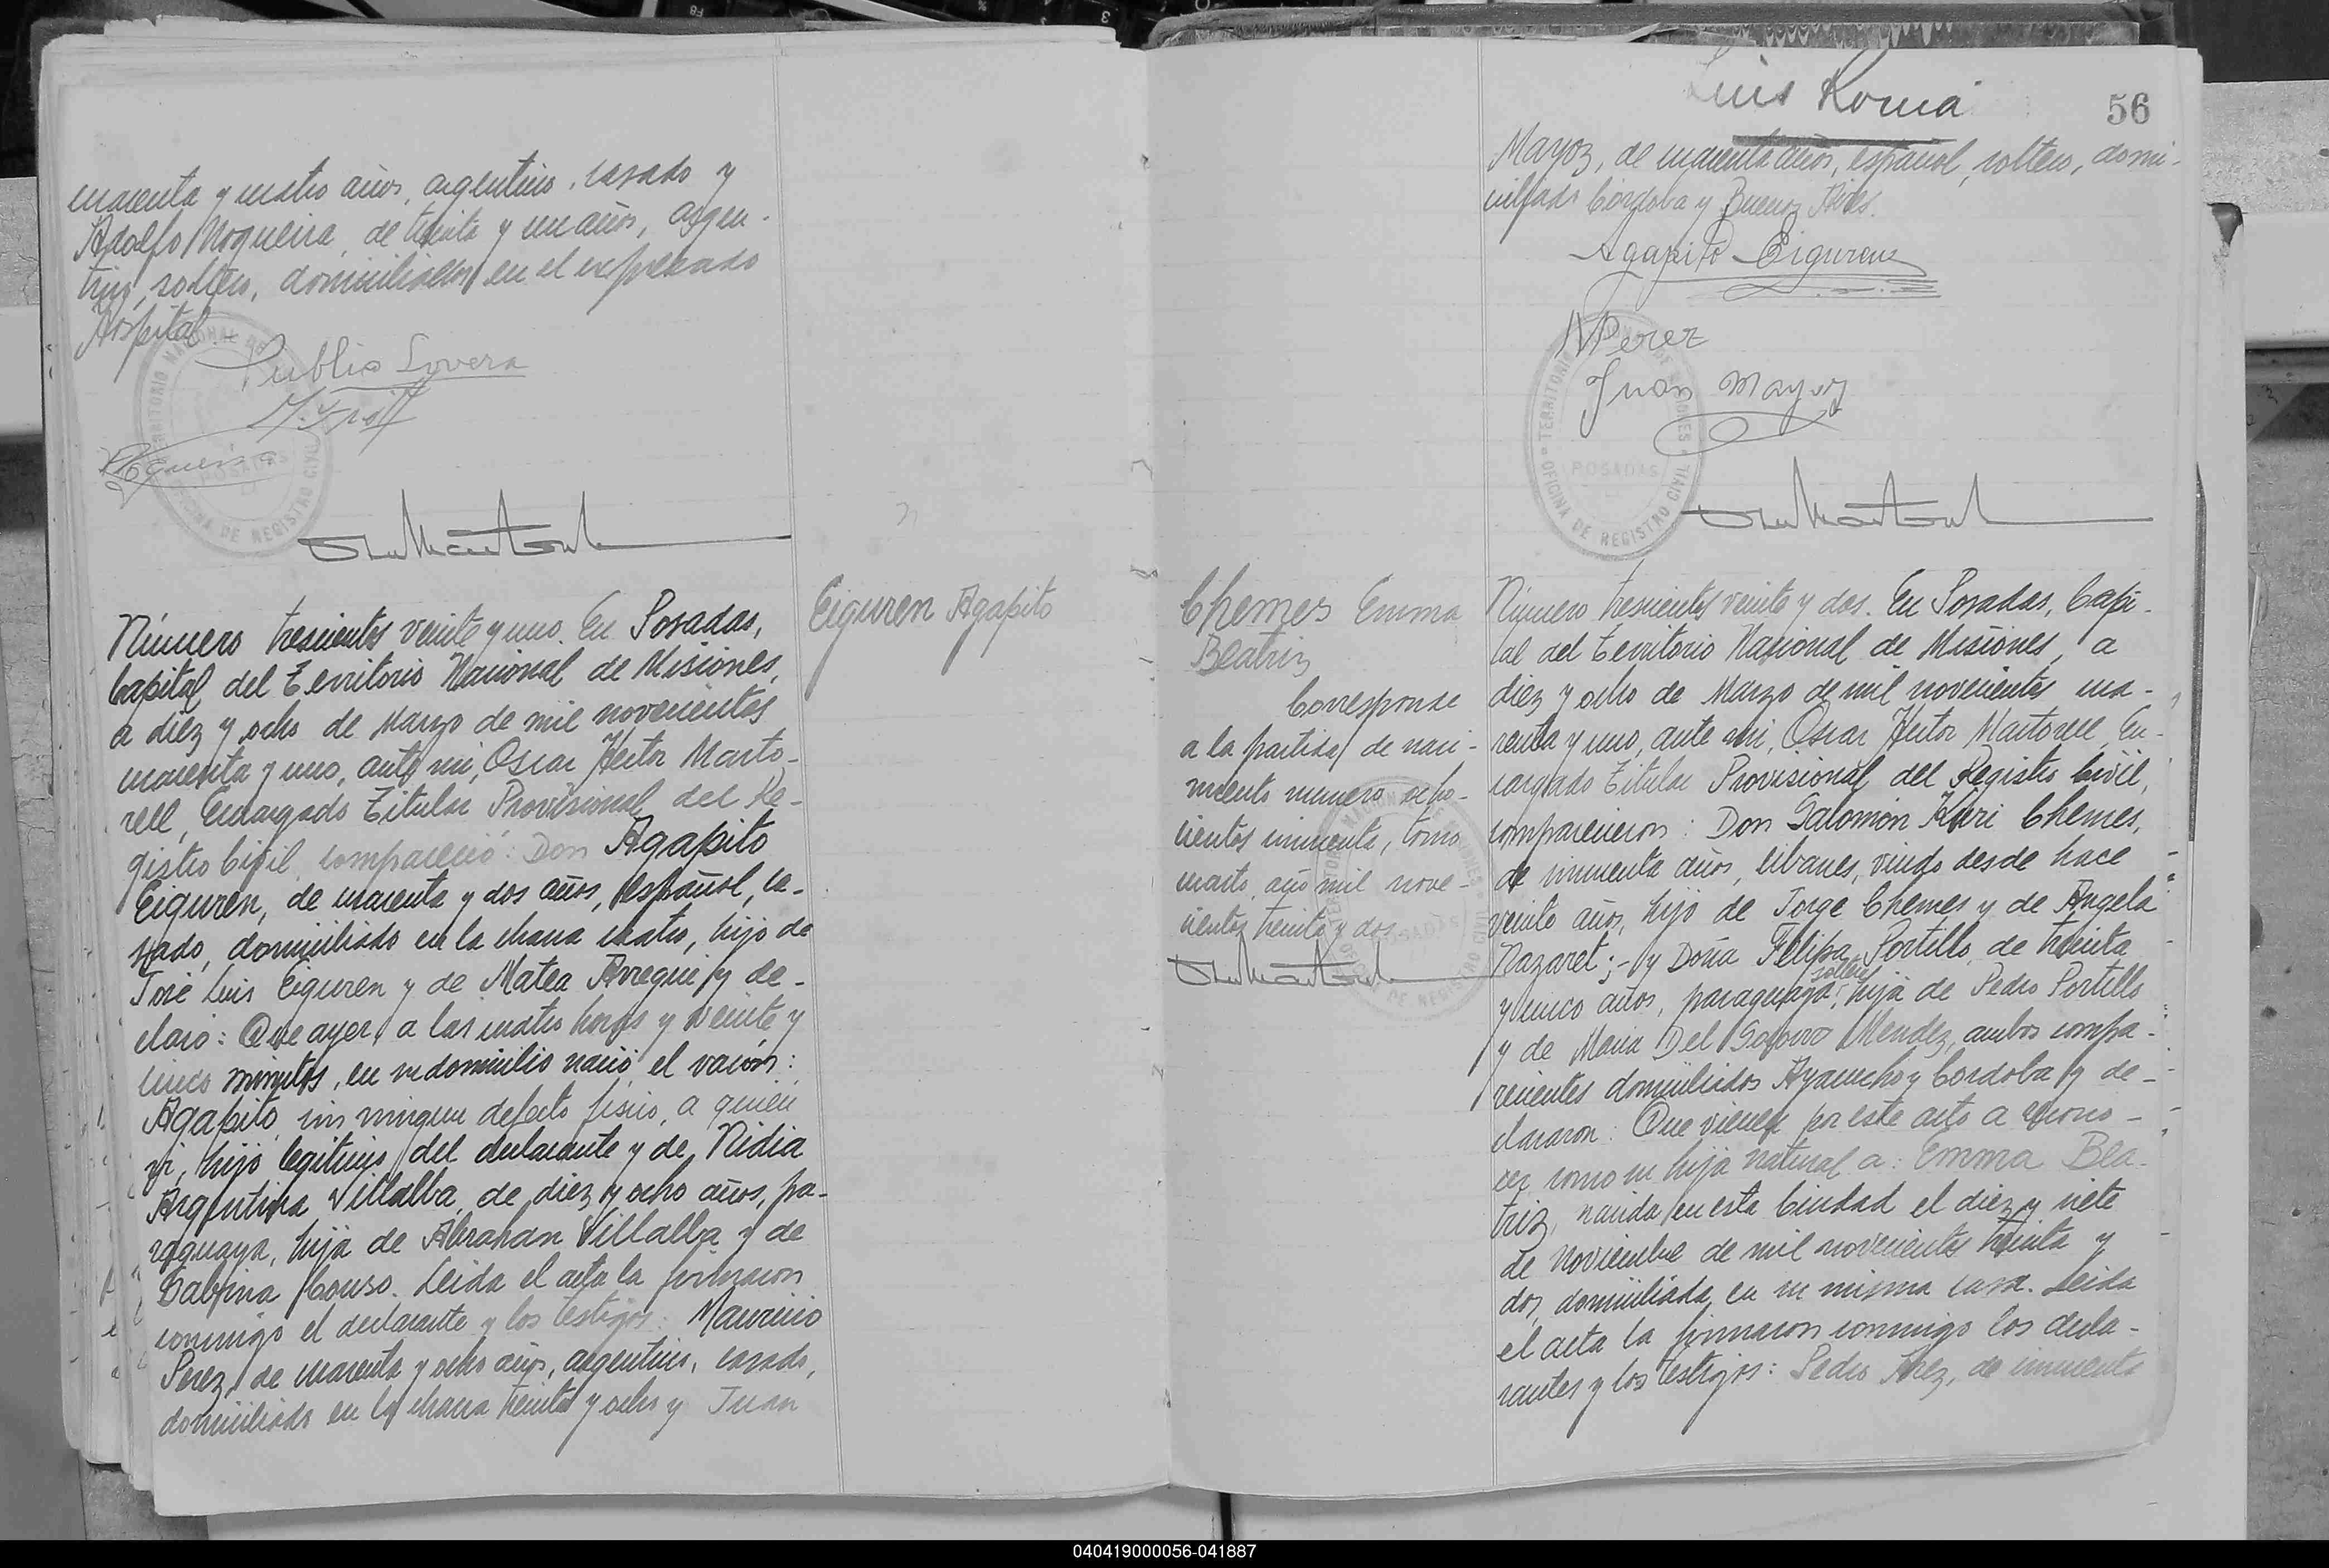 cuarenta y cuatro años, argentino, casado y
Adolfo Nogueira, de treinta y un años, argen-
tino, soltero, domiciliados en el expresado
Hospital.-
Publio Lovera
Nogueira
TERRITORIO NACIONAL DE MISIONES
POSADAS
OFICINA DE REGISTRO CIVIL
Número trescientos veinte y uno. En Posadas,
Capital del Territorio Nacional de Misiones,
a diez y ocho de Marzo de mil novecientos
cuarenta y uno, ante mi, Oscar Hector Marto-
rell, Encargado Titular Provisional del Re-
gistro Civil, compareció: Don Agapito
Eiguren, de cuarenta y dos años, español, ca-
sado, domiciliado en la chacra cuatro, hijo de
José Luis Eiguren y de Matea Arregui y de-
claró: Que ayer, a las cuatro horas y veinte y
cinco minutos, en su domicilio nació el varón:
Agapito, sin ningun defecto fisico, a quien
vi, hijo legitimo del declarante y de Nidia
Argentina Villalba, de diez y ocho años, pa-
raguaya, hija de Abrahan Villalba y de
Sabrina Couso. Leida el acta la firmaron
conmigo el declarante y los testigos: Mauricio
Perez, de cuarenta y ocho años, argentino, casado,
domiciliado en la chacra treinta y ocho y Juan
Eiguren Agapito
Luis Romá
56
Mayoz, de cuarenta años, español, soltero, domi-
ciliado Córdoba y Buenos Aires.
Agapito Eiguren
MPerez
Juan Mayoz
TERRITORIO NACIONAL DE MISIONES
POSADAS
OFICINA DE REGISTRO CIVIL
Chemes Emma
Beatriz
Corresponde
a la partida de naci-
miento numero ocho-
cientos cincuenta, tomo
cuarto, año mil nove-
cientos treinta y dos
Número trescientos veinte y dos. En Posadas, Capi-
tal del Territorio Nacional de Misiones, a
diez y ocho de Marzo de mil novecientos cua-
renta y uno, ante mi, Oscar Hector Martorell, En-
cargado Titular Provisional del Registro Civil,
comparecieron: Don Salomón Kuri Chemes,
de cincuenta años, libanes, viudo desde hace
veinte años, hijo de Jorge Chemes y de Angela
Nazaret;- y Doña Felipa Portillo, de treinta
soltera
y cinco años, paraguaya, hija de Pedro Portillo
y de Maria Del Socorro Mendez, ambos compa-
recientes domiciliados Ayacucho y Cordoba y de-
clararon: Que vienen por este acto a recono-
cer como su hija natural a: Emma Bea-
triz, nacida en esta Ciudad el diez y siete
de Noviembre de mil novecientos treinta y
dos, domiciliada en su misma casa. Leida
el acta la firmaron conmigo los decla-
rantes y los testigos: Pedro Arez, de cincuenta
040419000056-041887